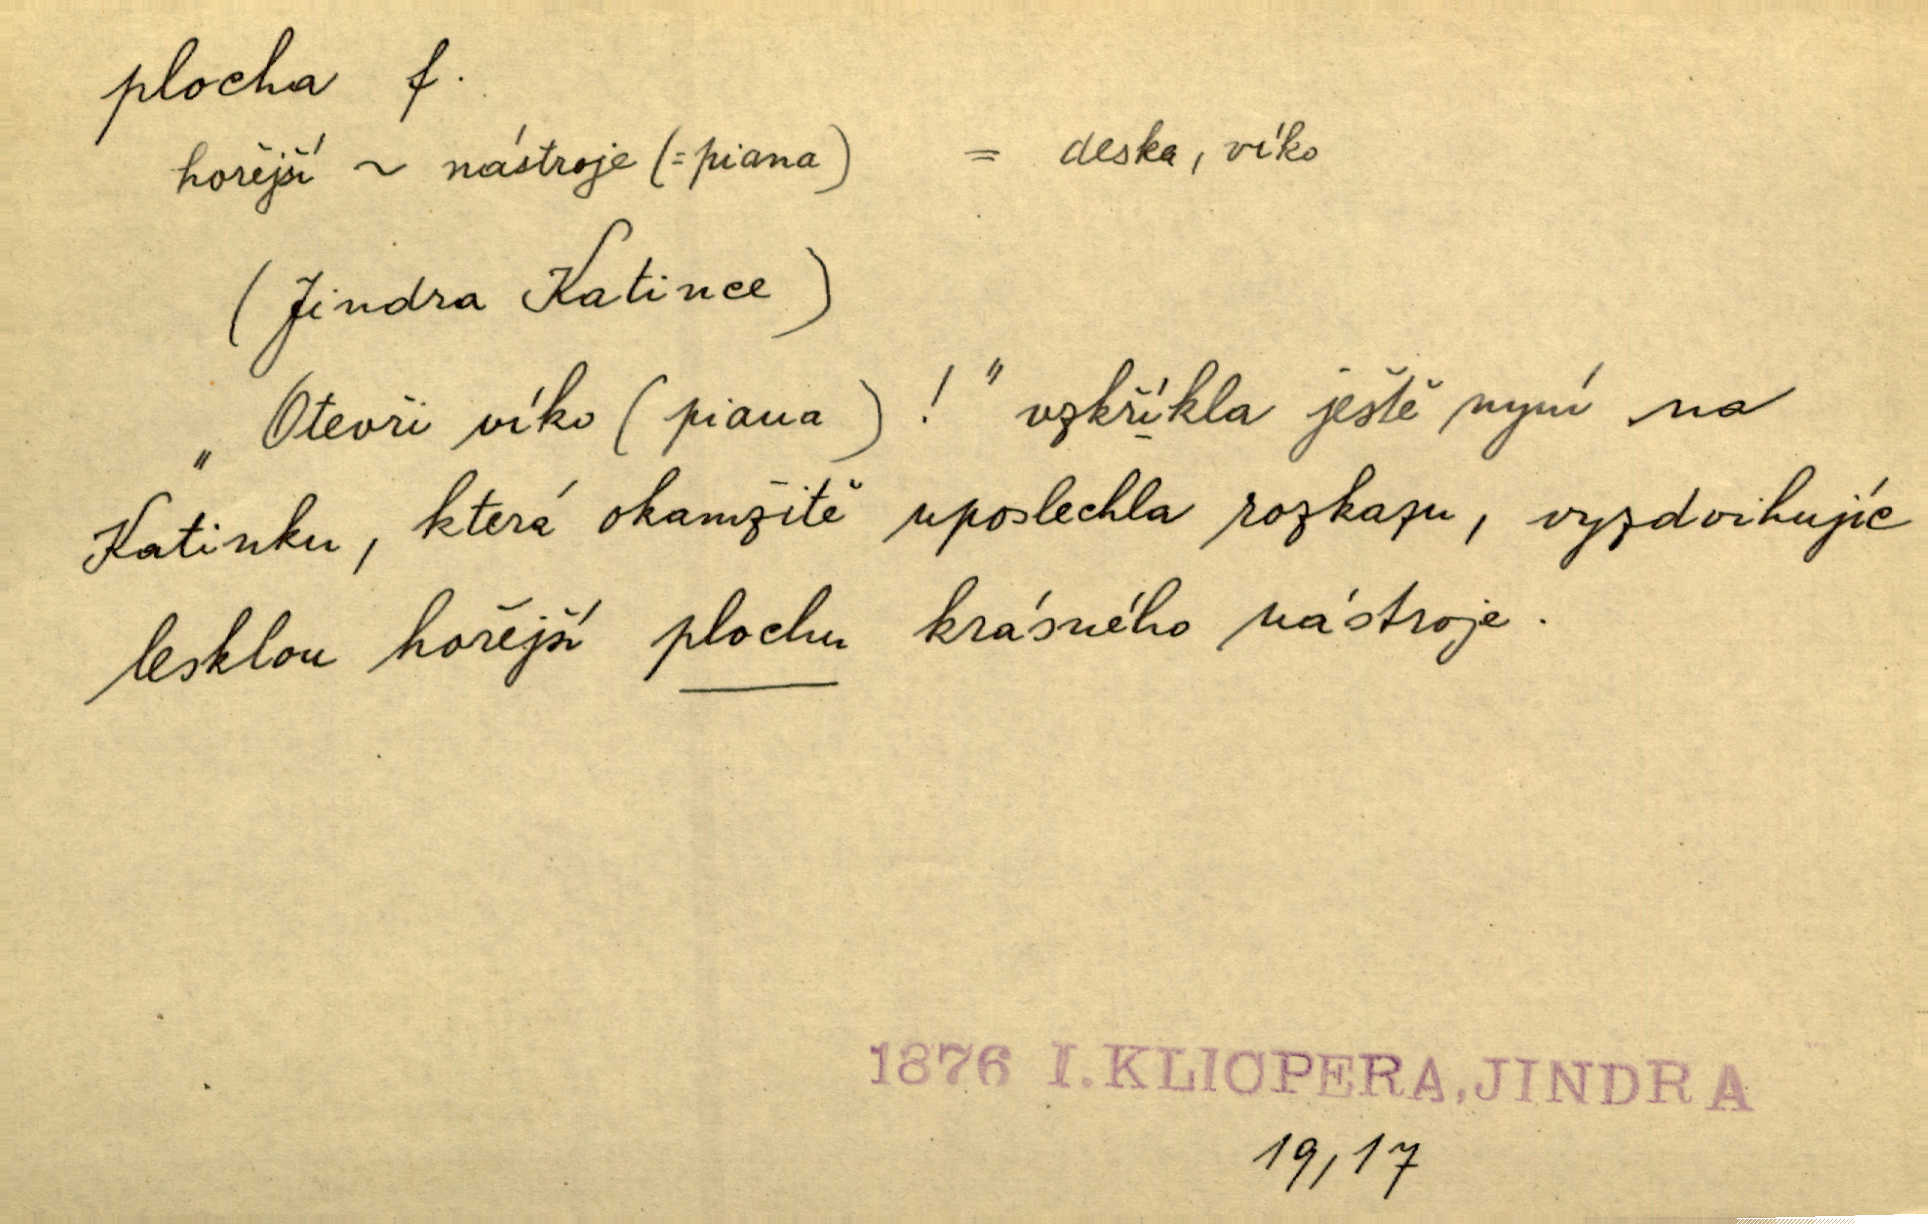 plocha f.
hořejší ~ nástroje (= piana) = deska, víko
(Jindra Katince)
„Otevři víko (piana)!" vzkřikla ještě nyní na
Katinku, která okamžitě uposlechla rozkazu, vyzdvihujíc
lesklou hořejší plochu krásného nástroje.
1876 I. KLICPERA, JINDRA
19,17